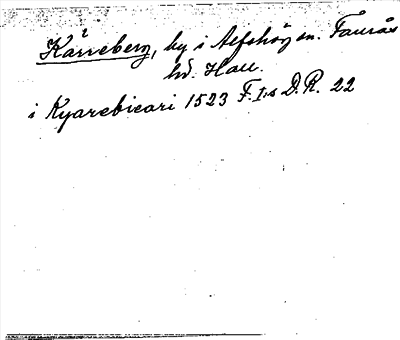 Kärreberg, by i Alfshög sn. Faurås
hd. Hall.
i Kyarebicari 1523 F.I:s D.R. 22